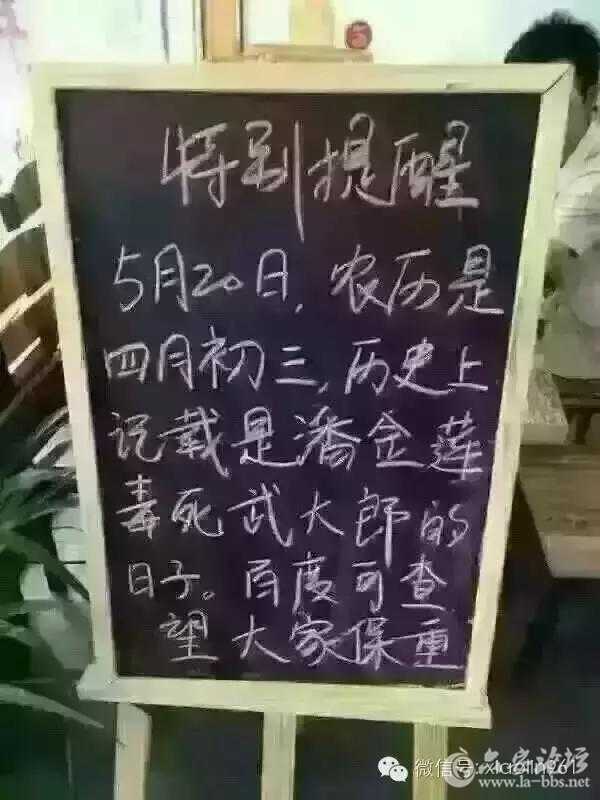 特别提醒
5月20日,农历是
四月初三,历史上
记载是潘金莲
毒死武大郎的
日子。百度可查
望大家保重
微信号:
www.la-bbs.net